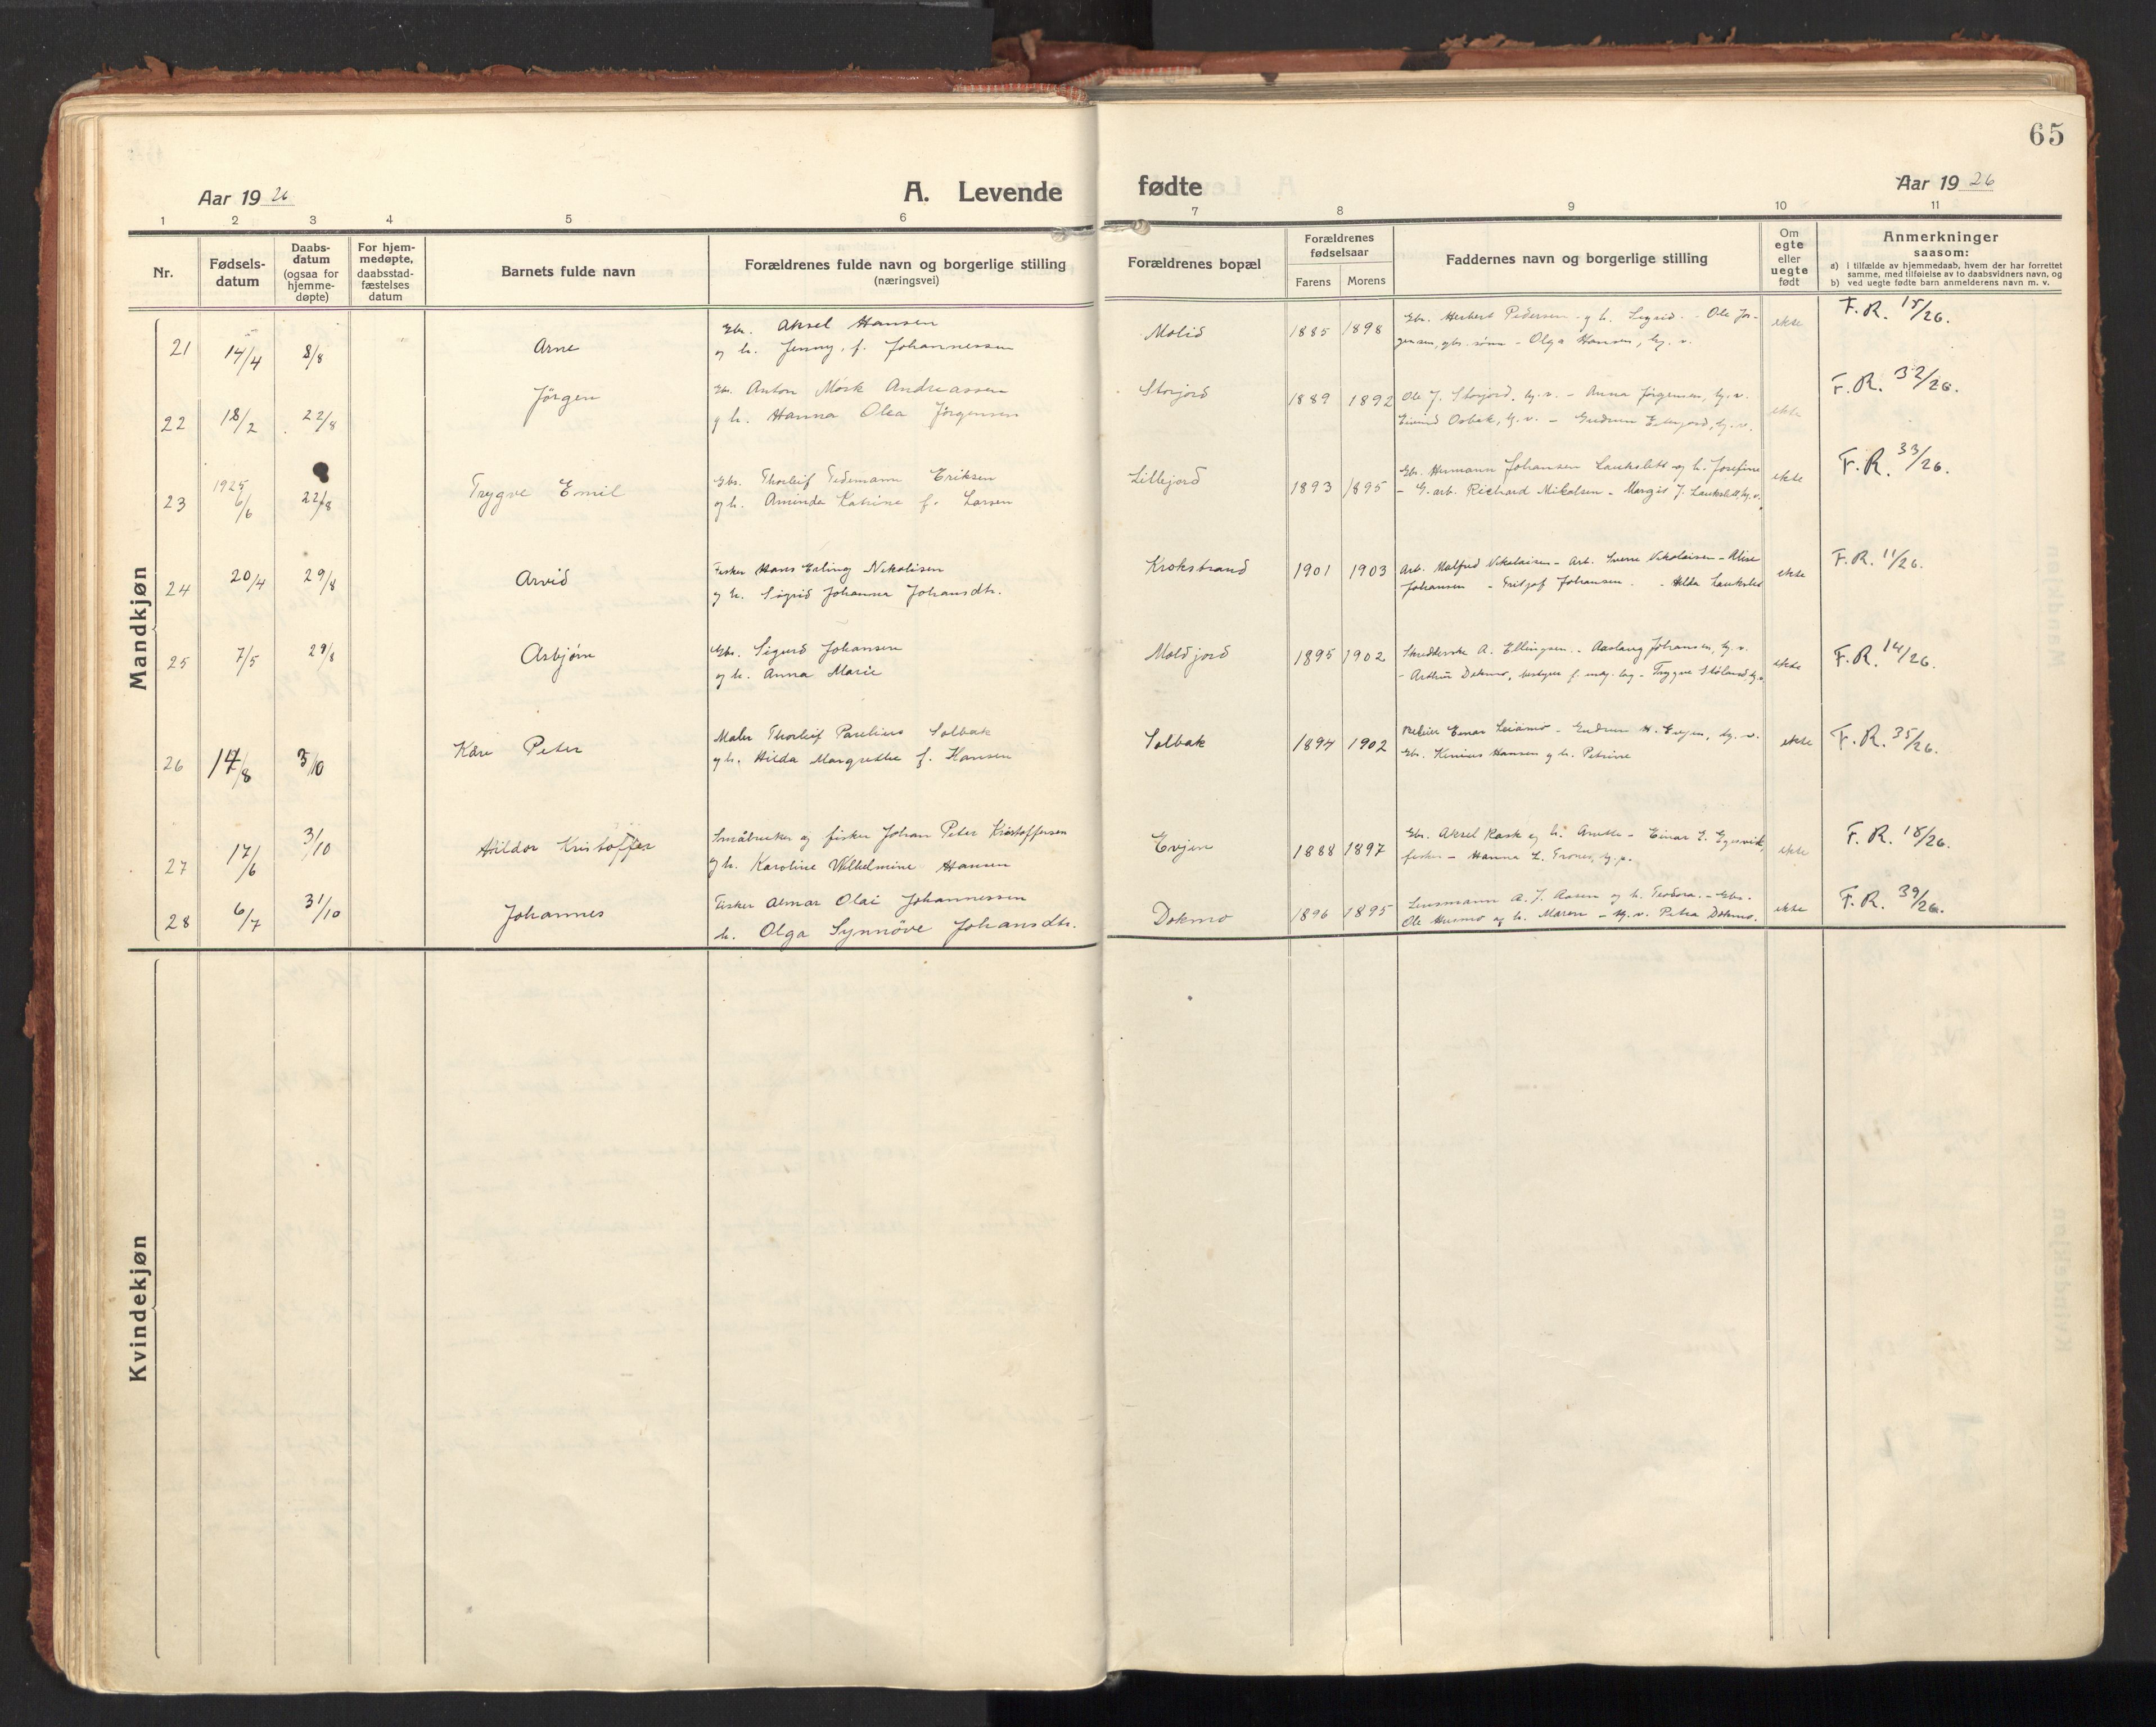 65
Aar 1926
A. Levende fødte
Aar 1926
1 2 3 4 5 6 7 8 9 10 11
Nr.
Fødsels-
datum
Daabs-
datum
(ogsaa for
hjemme-
døpte)
For hjem-
medøpte,
daabsstad-
fæstelses
datum
Barnets fulde navn
Forældrenes fulde navn og borgerlige stilling
(næringsvei)
Forældrenes bopæl
Forældrenes
fødselsaar
Farens Morens
Faddernes navn og borgerlige stilling
Om
egte
eller
uegte
født
Anmerkninger
saasom:
a) i tilfælde av hjemmedaab, hvem der har forrettet
samme, med tilføielse av to daabsvidners navn, og
b) ved uegte fødte barn anmelderens navn m. v.
Mandkjøn
21 14/4 8/8 Arne
Gbr. Aksel Hansen
og h. Jenny, f. Johannessen
Molid 1885 1898
Gbr. Herbert Pedersen og h. Sigrid. - Ole Jör-
gensen, gbr. sönn - Olga Hansen, tj. v.
ekte F. R. 15/26.
22 18/2 22/8 Jörgen
Gbr. Anton Mörk Andreassen
og h. Hanna Olea Jörgensen
Storjord 1889 1892
Ole J. Storjord, tj. v. - Anna Jörgensen, tj. v.
Eivind Osbak, tj. v. - Gudrun tj. v.
ekte F. R. 32/26.
23 1925 6/6 22/8 Trygve Emil
Gbr. Thorleif Tidemann Eriksen
og h. Aminda Katrine f. Larsen
Lillejord 1893 1895
Gbr. Hermann Johansen Laukslett og h. Josefine
- G. arb. Richard Mikalsen - Margit J. Laukslett, tj. v.
ekte F. R. 33/26.
24 20/4 29/8 Arvid
Fisker Hans Erling Nikolisen
og h. Sigrid Johanna Johansdtr.
Kroksbrand 1901 1903
Arb. Malfred Nikolaisen - Arb. Sverre Nikolaisen - Alise
Johansen - Fritjof Johansen. - Hilda Laukslet
ekte F. R. 11/26.
25 7/5 29/8 Asbjörn
Gbr. Sigurd Johansen
og h. Anna Marie
Moldjord 1895 1902
A. Ellingsen. - Aaslaug Johansen, tj. v.
- Arthur Dokmo, bestyrer f. - Trygve
ekte F. R. 14/26.
26 14/8 3/10 Kåre Peter
Maler Thorleif Parelius Solbak
og h. Hilda Margrethe f. Hansen
Solbak 1894 1902
Einar Leiamo - Gudrun H. Evjen, tj. v.
Gbr. Hansen og h. Petrine
ekte F. R. 35/26.
27 17/6 3/10 Hildor Kristoffer
Småbruker og fisker Johan Peter Kristoffersen
og h. Karoline Vilhelmine Hansen
Evjen 1888 1897
Gbr. Aksel Rask og h. Anette - Einar E.
fisker - Hanna L. Trones, tj. p.
ekte F. R. 18/26.
28 6/7 31/10 Johannes
Fisker Almar Olai Johannessen
h. Olga Synnöve Johansdtr.
Dokmo 1896 1895
Lensmann A. J. Aasen og h. Teodora. - Gbr.
Ole og h. Maren - tj. v. Petra Dokmo.
ekte F. R. 39/26.
Kvindekjøn